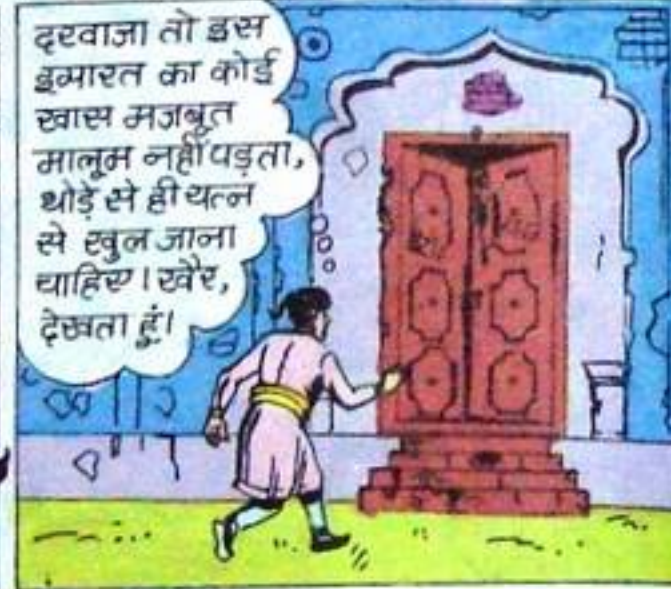 दरवाजा तो इस
इमारत का कोई
खास मजबूत
मालूम नहीं पड़ता,
थोड़े से ही यत्न
से खुल जाना
चाहिए। खैर,
देखता हूं।